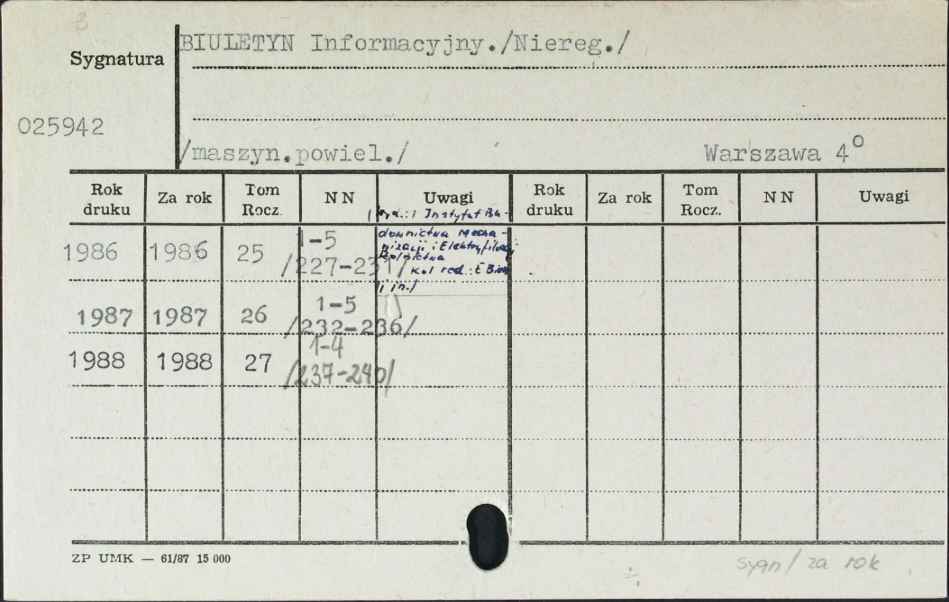 BIULETYN Informacyjny./Niereg./
Sygnatura
025942
/maszyn.powiel./ Warszawa 4°
Rok druku Za rok Tom Rocz. NN Uwagi Rok druku Za rok Tom Rocz. NN Uwagi
Instytut Bu-
downictwa Mecha-
nizacji i Elektryfikacji
Rolnictwa
Kol red.:
i in./
1986 1986 25 1-5 /227-231/
1987 1987 26 1-5 /232-236/
1988 1988 27 1-4 /237-240/
ZP UMK — 61/87 15 000
sygn/ za rok